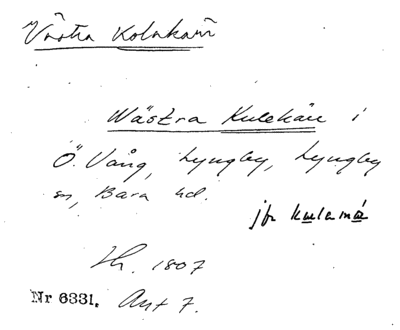 Västra Kolakärr
Wästra Kulekärr i
Ö. Vång, Lyngby, Lyngby
sn, Bara hd.
jfr kulamá
Lh. 1807
Nr 6331. Akt 7.